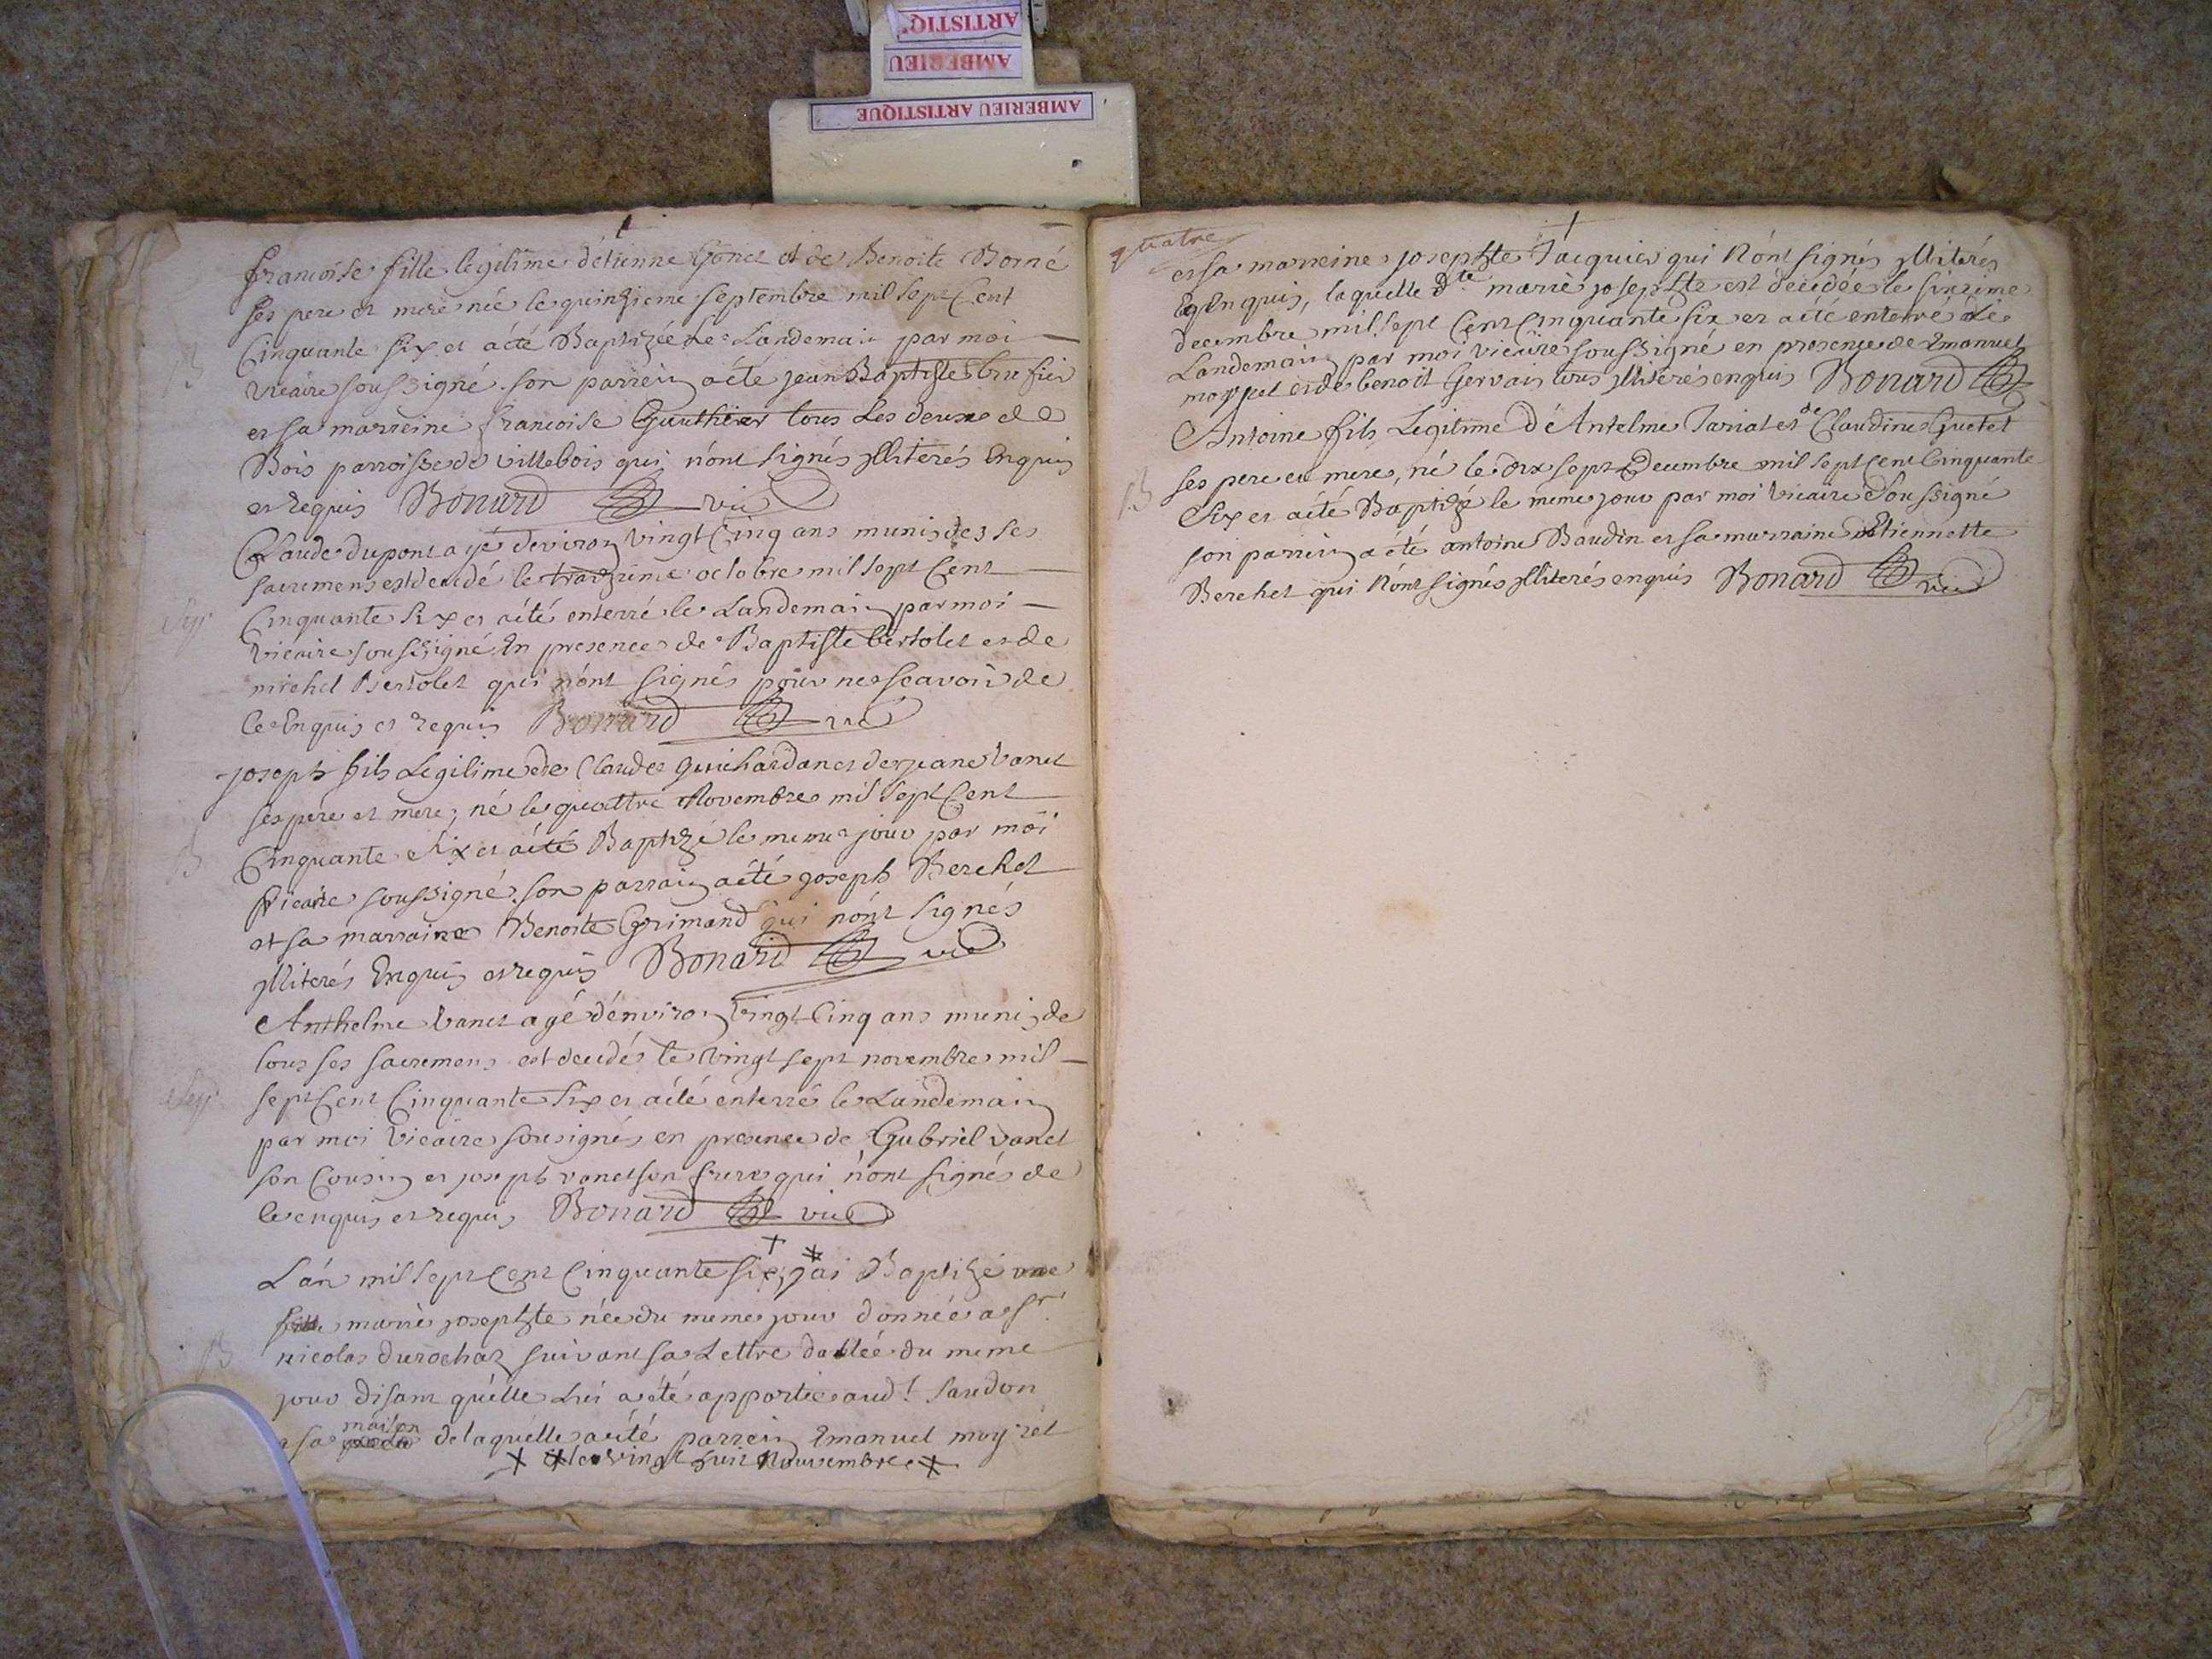 ARTISTIQ'
AMBERIEU
AMBERIEU ARTISTIQUE
françoise fille legitime d'étienne Gonet et de Benoite Borné
ses pere et mere née le quinzieme septembre mil sept Cent
Cinquante six et a été Baptizée Le Landemain par moi
vicaire soussigné. son parrein a été jean Baptiste brusier
et sa marreine francoise Gauthier tous Les deux de
Bois parroisse de villebois qui n'ont signés illiterés Enquis
et requis Bonard vic
B
Claude dupont agé d'environ vingt Cinq ans muni de ses
sacremens est decedé le traizieme octobre mil sept Cent
Cinquante six et a été enterré le Landemain par moi
vicaire soussigné En presence de Baptiste bertolet et de
michel Bertolet qui n'ont signés pour ne scavoir de
ce Enquis et requis Bonard vic
Sep.
joseph fils Legitime de Claude Guichardan et de jeane vanet
ses pere et mere; né le quattre Novembre mil sept Cent
Cinquante six et a été Baptizé le meme jour par moi
Vicaire soussigné. son parrain a été joseph Berchet
et sa marraine Benoite Grimand qui n'ont signés
illiterés Enquis et requis Bonard vic
B
Anthelme vanet agé d'environ vingt Cinq ans muni de
tous ses sacremens est decedé le vingt sept novembre mil
sept Cent Cinquante six et a été enterré le Landemain
par moi vicaire sousigné en presence de Gabriel vanet
son Cousin et joseph vanet son frere qui n'ont signés de
ce enquis et requis Bonard vic
Sep.
L'an mil sept Cent Cinquante six, j'ai Baptizé une
fille marie josephte née du meme jour donnée a sr.
nicolas durochat suivant sa Lettre dattée du meme
jour disant qu'elle Lui a été apportée aud.t Saudon
a sa maison de laquelle a été parrein Emanuel moyret
B
le vingt huit Nouvembre
quatre
et sa marreine josephte Jacquier qui N'ont signés illiterés
Enquis, laquelle dte marie josephte est decedée le sixieme
decembre mil sept Cent Cinquante six et a été enterré Le
Landemain par moi vicaire soussigné en presence de Emanuel
moyret et de benoit Gervais tous illiterés enquis Bonard
Antoine fils Legitime d'Antelme Jariat et de Claudine Guetet
ses pere et mere, né le dix sept Decembre mil sept Cent Cinquante
Six et a été Baptizé le meme jour par moi vicaire Soussigné
son parrein a été antoine Baudin et sa marraine Etiennette
Berchet qui N'ont signés illiterés enquis Bonard vic
B